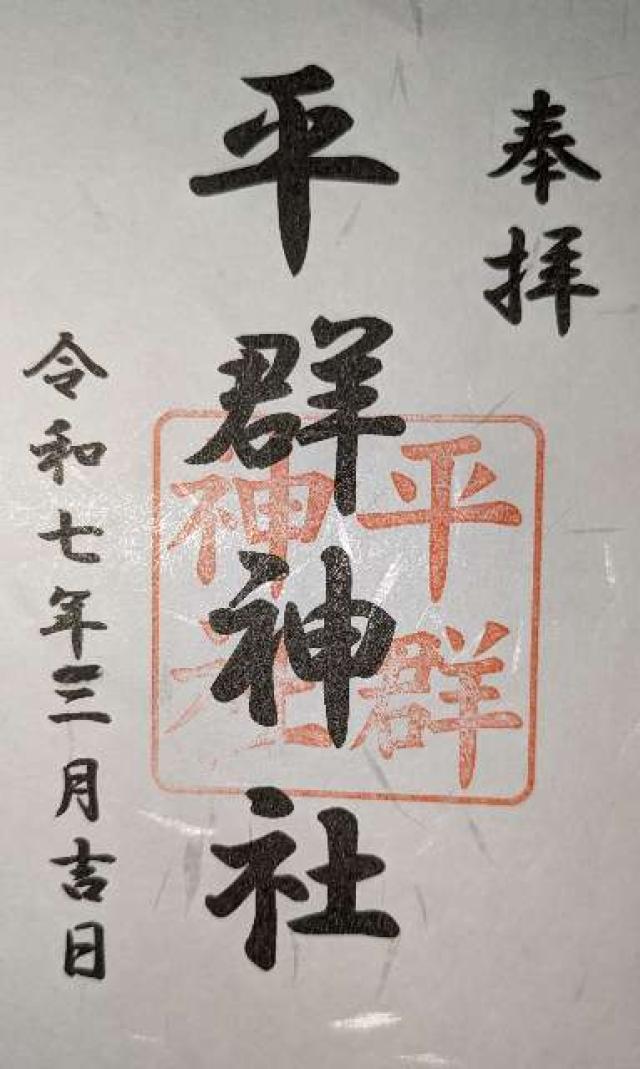 奉拝
平群神社
平群
神社
令和七年三月吉日